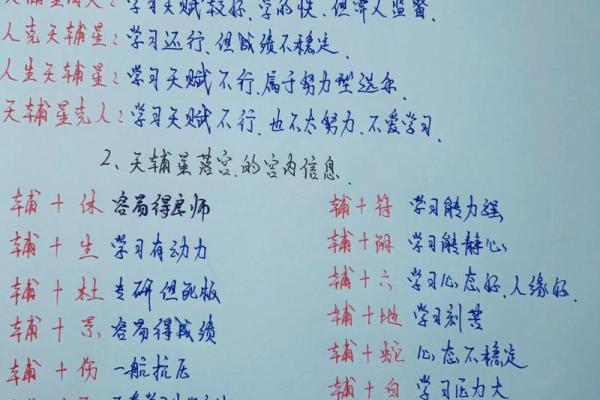 学习天赋较好,学的快,但需人监督.
人克天辅星:学习还行,但成绩不稳定.
人生天辅星:学习天赋不行,属于努力型选手.
天辅星克人:学习天赋不行,也不太努力,不爱学习.
2、天辅星落宫,的宫内信息.
辅+休 容易得良师
辅+生 学习有动力
辅+杜 专研但死板
辅+景 容易得成绩
辅+伤 一般抗压
辅+符 学习能力强
辅+阴 学习能静心
辅+六 学习心态好,人缘好.
辅+地 学习刻苦
辅+蛇 心态不稳定
辅+白 学习压力大